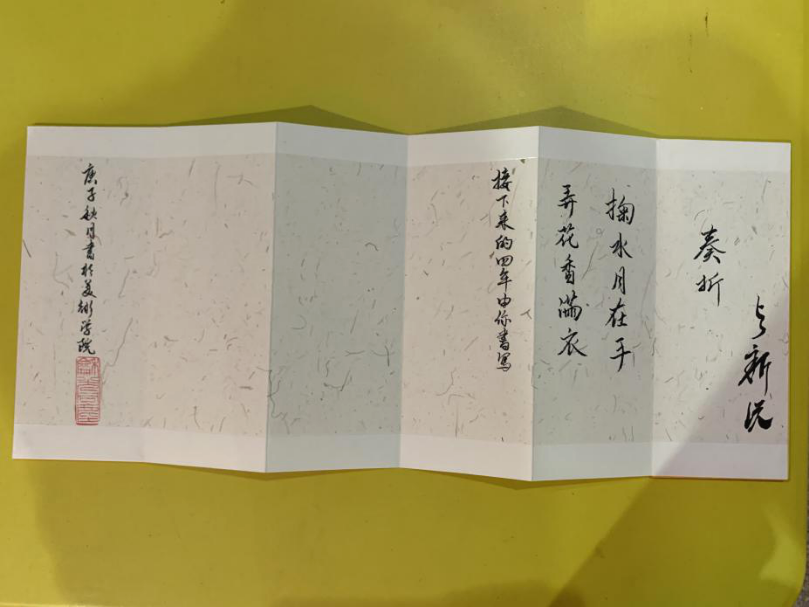 与新说
奏折
掬水月在手
弄花香满衣
接下来的四年由你書写
庚子秋月書於美術学院